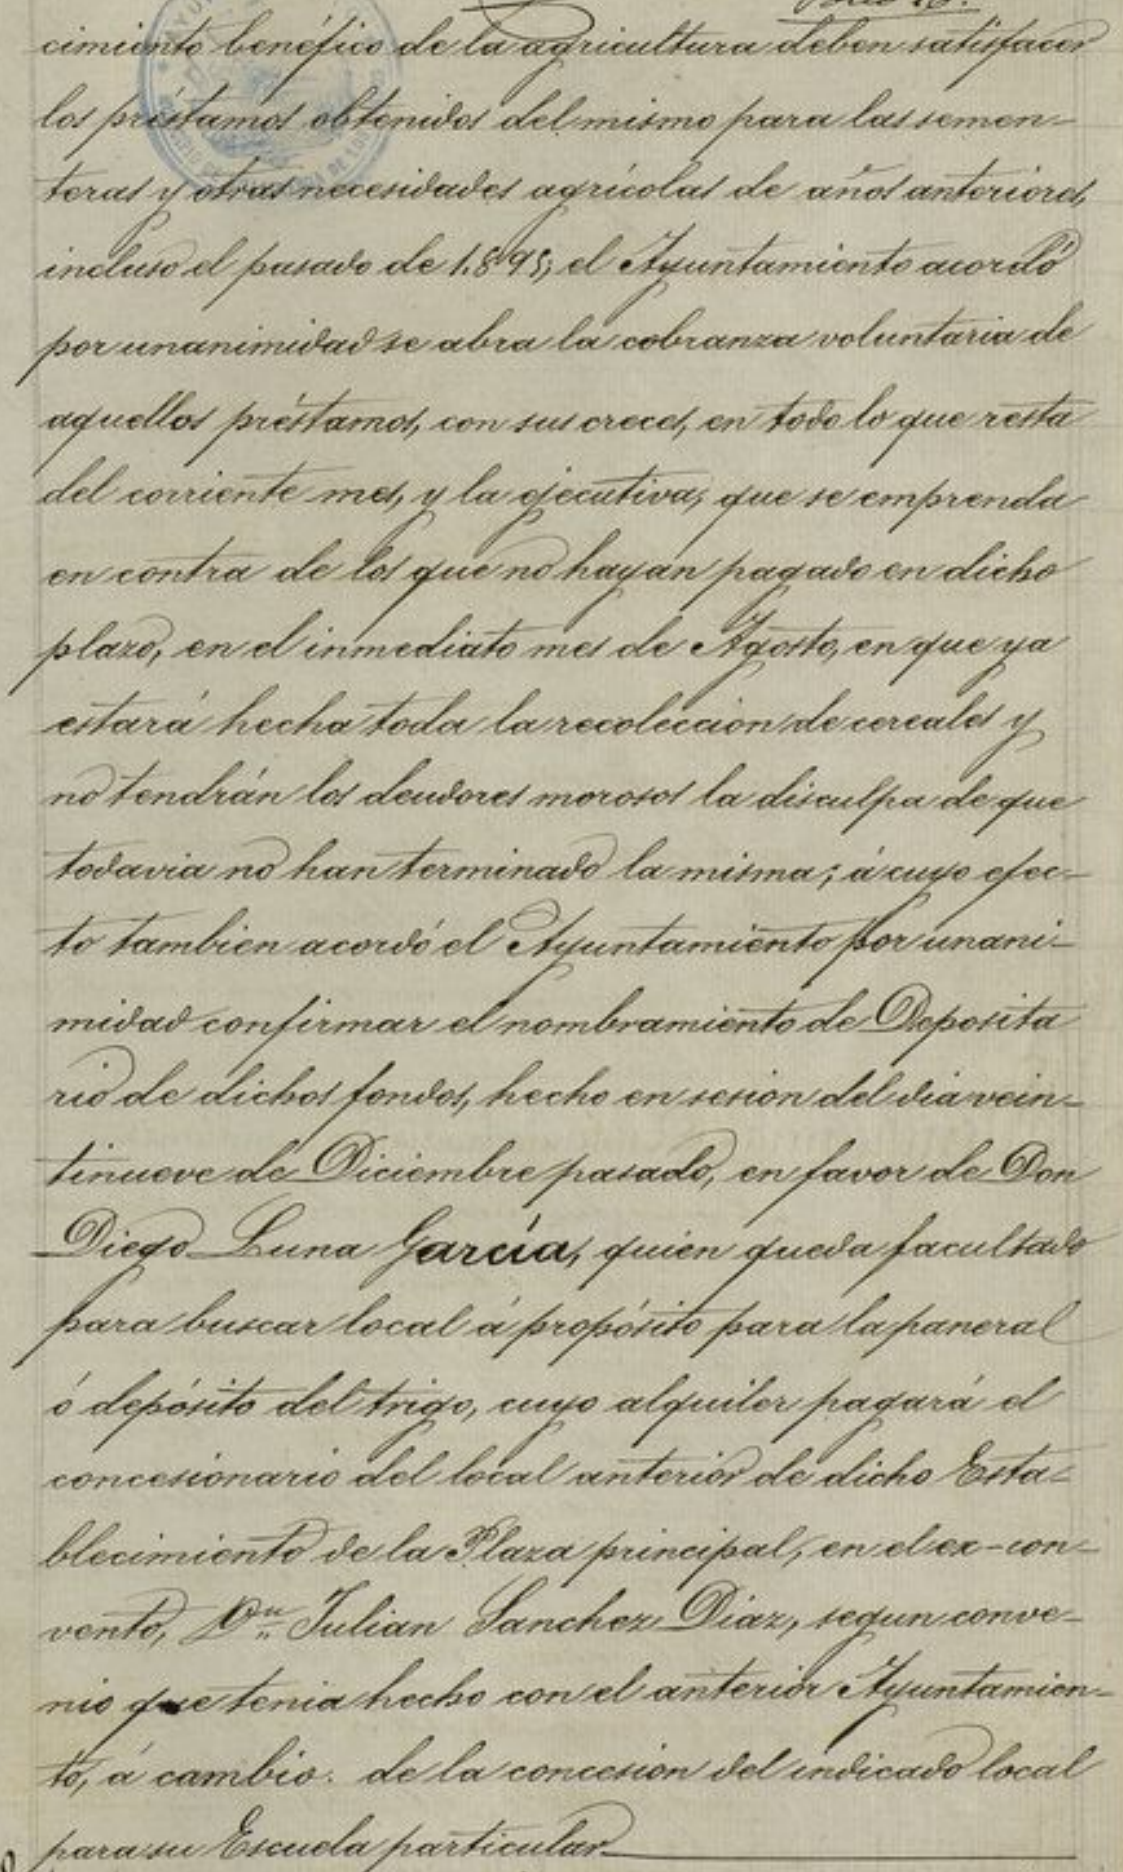 cimiento benéfico de la agricultura deben satisfacer
los préstamos obtenidos del mismo para las semen-
teras y otras necesidades agrícolas de años anteriores,
incluso el pasado de 1.895; el Ayuntamiento acordó
por unanimidad se abra la cobranza voluntaria de
aquellos préstamos, con sus creces, en todo lo que resta
del corriente mes, y la ejecutiva, que se emprenda
en contra de los que no hayan pagado en dicho
plazo, en el inmediato mes de Agosto, en que ya
estará hecha toda la recoleccion de cereales y
no tendrán los deudores morosos la disculpa de que
todavia no han terminado la misma; á cuyo efec-
to tambien acordó el Ayuntamiento por unani-
midad confirmar el nombramiento de Deposita
rio de dichos fondos, hecho en sesion del dia vein-
tinueve de Diciembre pasado, en favor de Don
Diego Luna García, quien queda facultado
para buscar local á propósito para la panera
ó depósito del trigo, cuyo alquiler pagará el
concesionario del local anterior de dicho Esta-
blecimiento de la Plaza principal, en el ex-con-
vento, Dn. Julian Sanchez Diaz, segun conve-
nio que tenia hecho con el anterior Ayuntamien-
to, á cambio. de la concesion del indicado local
para su Escuela particular